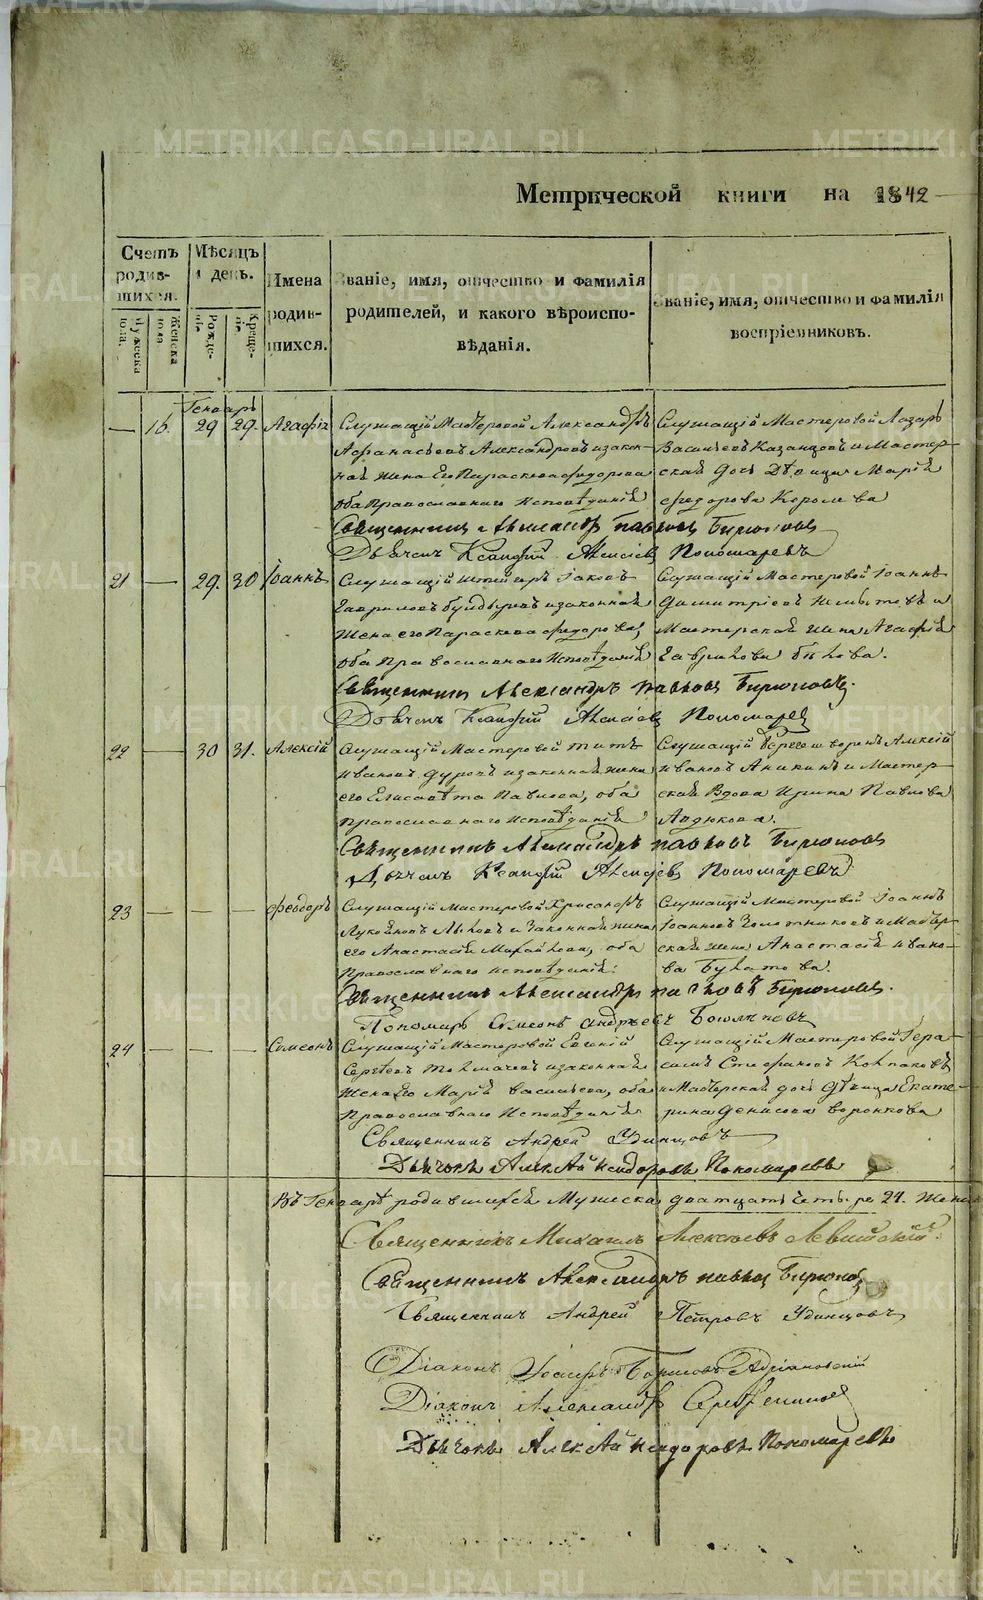 Метрической книги на 1842
Счетъ родившихся.
Мѣсяцъ и день.
Имена родившихся.
Званіе, имя, отчество и фамилія родителей, и какого вѣроисповѣданія.
Званіе, имя, отчество и фамилія воспріемниковъ.
Мужеска пола.
Женска пола.
Рожденія
Крещенія
Генварь
— 16. 29 29. Агафія
Служащій Мастеровой Александръ
Афанасьевъ Александровъ и закон-
ная жена Его Параскева Федорова
оба Православнаго Исповѣданія
Служащій Мастеровой Лазарь
Васильевъ Казанцовъ и Мастер-
ская дочь Дѣвица Марія
Федорова Королева
Священникъ Александръ Павловъ Бирюковъ
Дьячекъ Ксанфій Алексіевъ Пономаревъ
21 — 29. 30 Іоаннъ
Служащій штейгеръ Іаковъ
Гавриловъ и законная
жена его Параскева Федорова,
оба Православнаго Исповѣданія
Служащій Мастеровой Іоаннъ
Димитріевъ и
Мастерская жена Агафія
Гаврилова Быкова.
Священникъ Александръ Павловъ Бирюковъ.
Дьячекъ Ксанфій Алексіевъ Пономаревъ
22 — 30 31. Алексій
Служащій Мастеровой Титъ
Ивановъ и законная жена
его Елисавета Павлова, оба
православнаго исповѣданія
Служащій Алексій
Ивановъ Аникинъ и Мастер-
ская Вдова Ирина Павлова
Авдюкова.
Священникъ Александръ Павловъ Бирюковъ
Дьячекъ Ксанфій Алексіевъ Пономаревъ
23 — — — Феодоръ
Служащій Мастеровой Хрисанфъ
Лыковъ и Законная жена
его Анастасія Михайлова, оба
Православнаго исповѣданія.
Служащій Мастеровой Іоаннъ
Іоанновъ Золотниковъ и Мастер-
ская жена Анастасія Ивано-
ва Булатова.
Священникъ Александръ Павловъ Бирюковъ.
Пономарь Симеонъ Андреевъ
24 — — — Симеонъ
Служащій Мастеровой Евгеній
Сергѣевъ Толмачевъ и законная
жена Его Марія Васильева, оба
Православнаго Исповѣданія
Служащій Мастеровой Гера-
симъ Стефановъ Колпаковъ
и Мастерская дочь Дѣвица Екате-
рина Денисова Воронкова
Священникъ Андрей Удинцовъ
Дьячокъ Алексѣй Исидоровъ Пономаревъ
Въ Генварѣ родившихся Мужеска двадцать четыре 24. Женск
Священникъ Михаилъ Алексѣевъ Левитскій.
Священникъ Александръ Павловъ Бирюковъ
Священникъ Андрей Петровъ Удинцовъ
Діаконъ Іосифъ Борисовъ Адріановскій
Діаконъ Александръ Серебрениковъ
Дьячокъ Алексѣй Исидоровъ Пономаревъ
METRIKI.GASO-URAL.RU